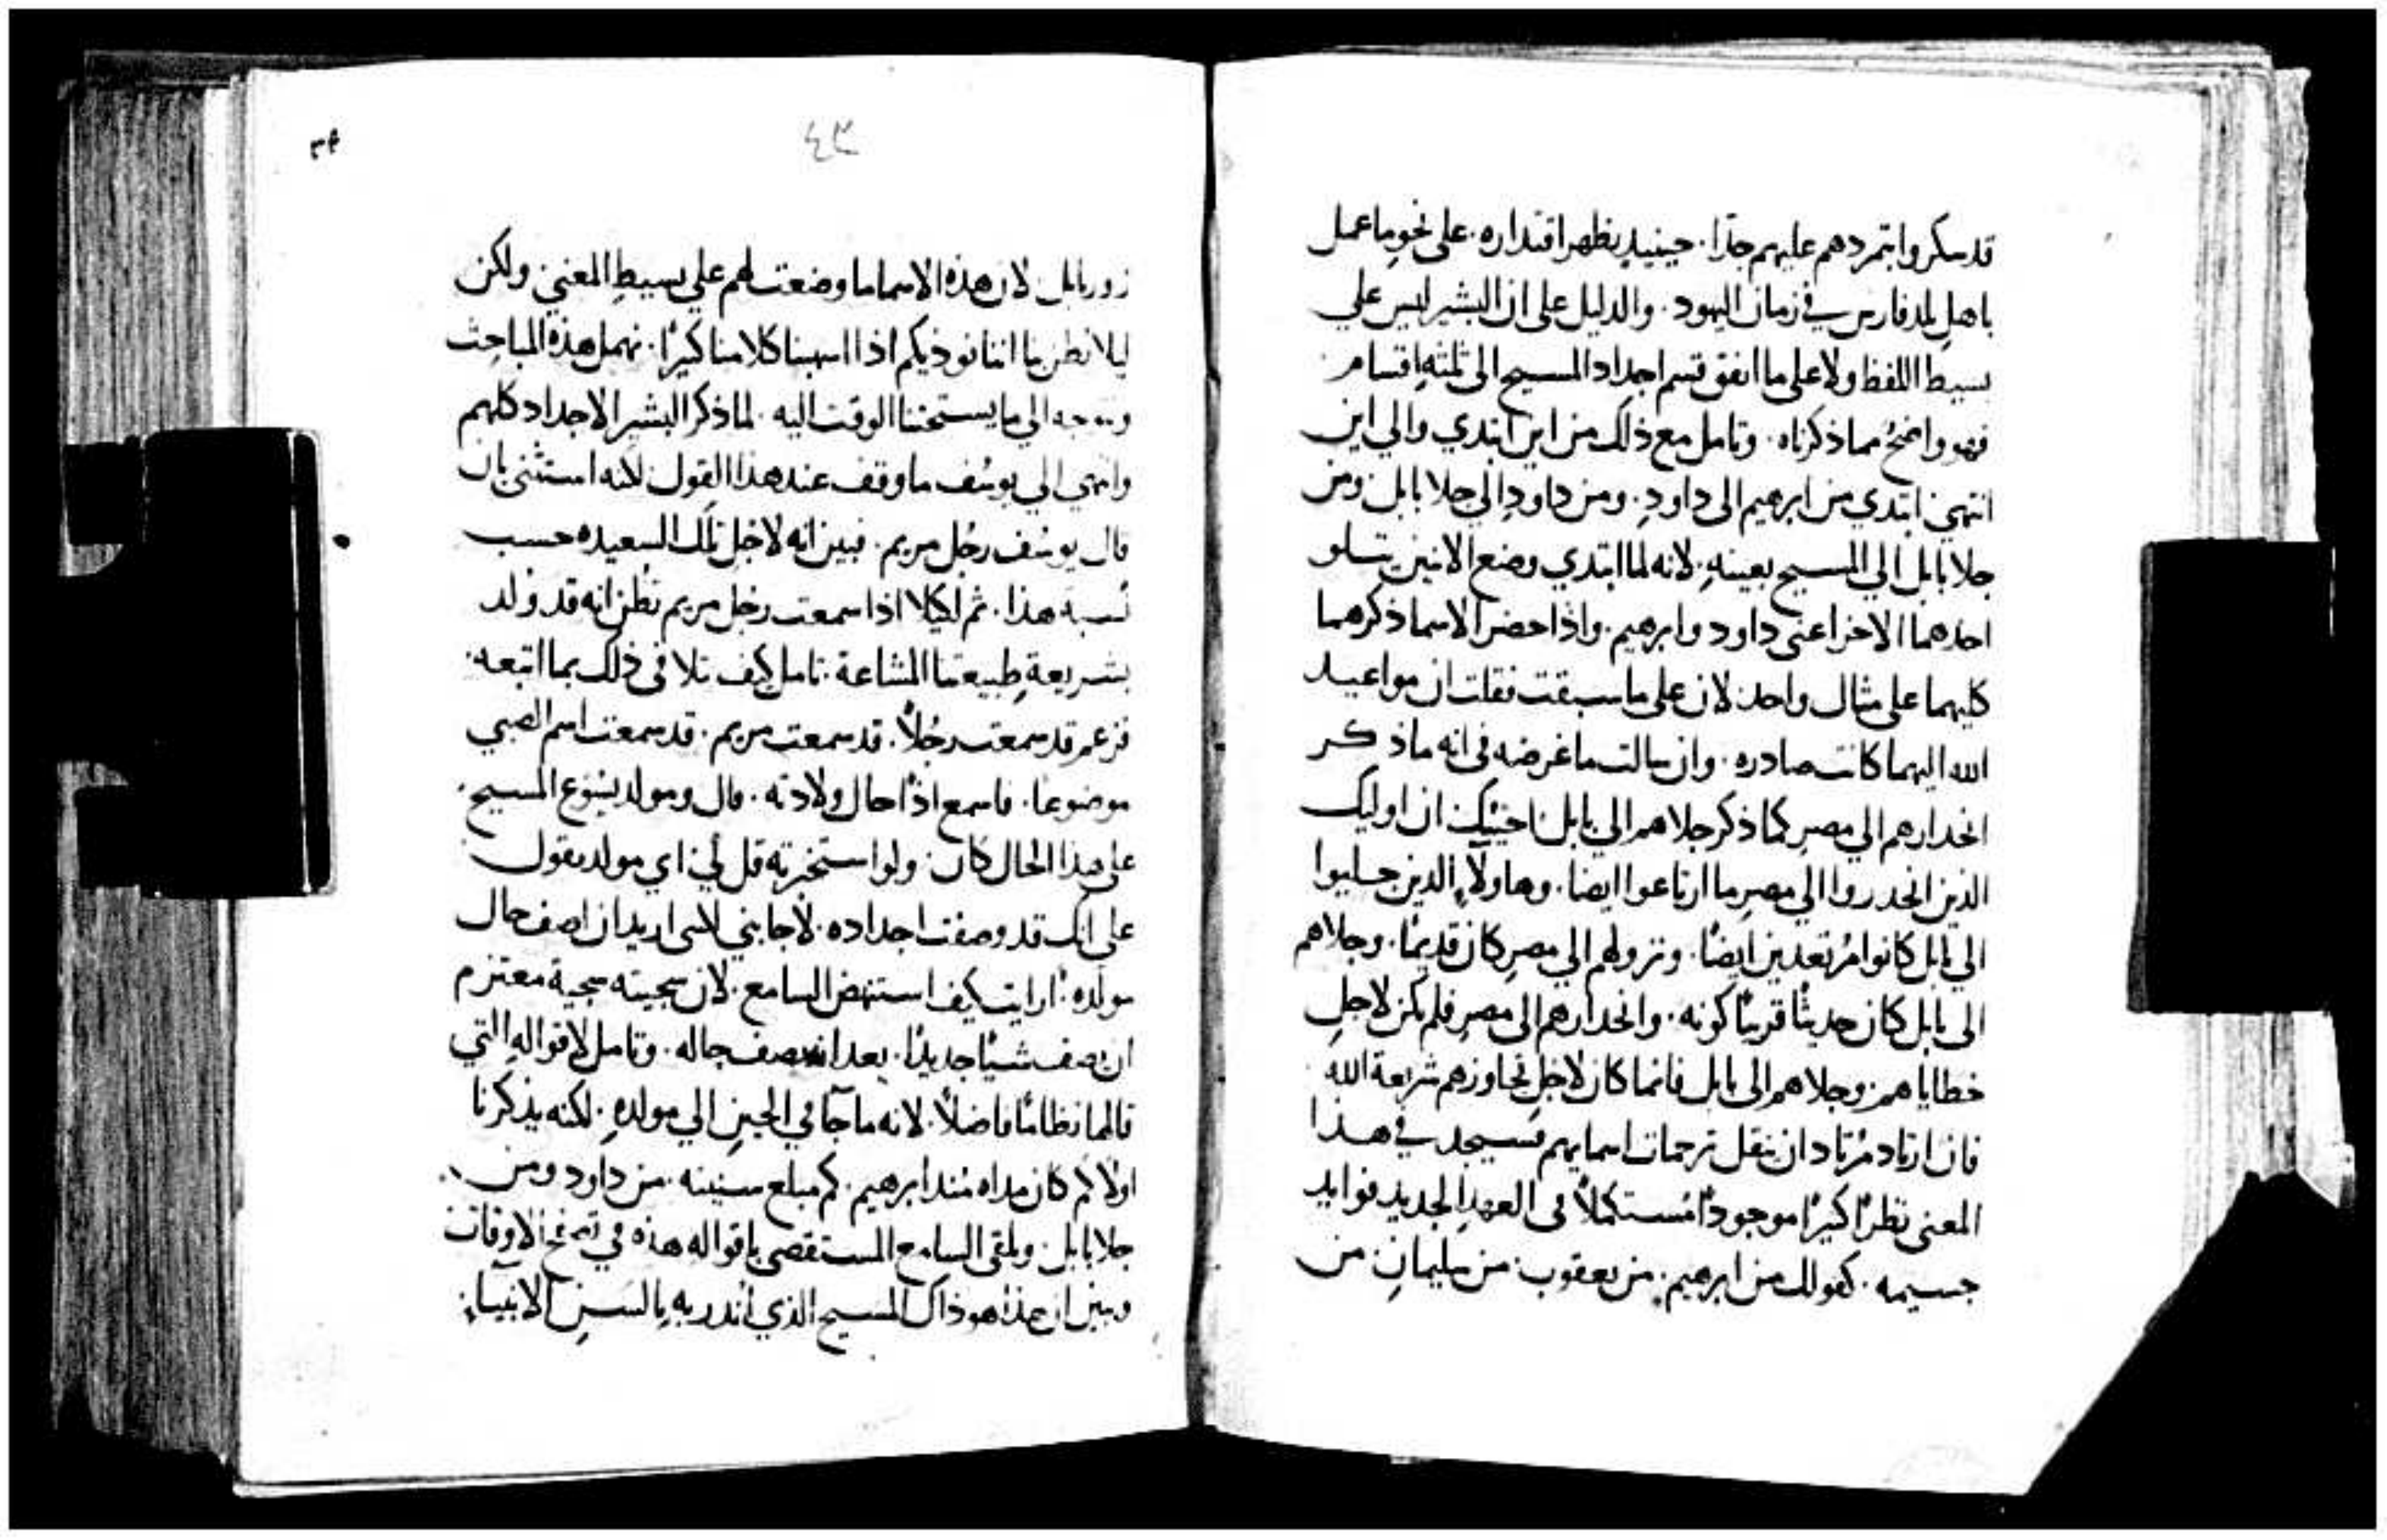 قد سكروا بتمردهم عليهم جدًا. حينيذٍ يظهر اقتداره. على نحوِ ما عمل
باهلِ بلد فارس في زمان اليهود. والدليل على ان البشير ليس علي
بسيط اللفظ ولا على ما اتفق قسم اجداد المسيح الى ثلثهِ اقسام
فهو واضحُ مما ذكرناه. وتامل مع ذلك من اين ابتدي والي اين
انتهي. ابتدي من ابرهيم الى داودِ. ومن داودِ الي جلا بابل. ومن
جلا بابل الي المسيح بعينهِ. لانه لما ابتدي وضع الاثنين يتلو
احدهما الاخر اعنى داود وابرهيم. واذا حضر الاسما ذكرهما
كليهما على مثال واحد. لان على ما سبقت فقلت ان مواعيد
الله اليهما كانت صادره. وان سالت ما غرضه فى انه ما ذكر
انحدارهم الي مصرِ كما ذكر جلاهم الي بابل. اجبتك ان اوليك
الذين انحدروا الي مصرِ ما ارتاعوا ايضا. وهاولآءِ الذين جليوا
الي بابل كانوا مُرتعدين ايضًا. ونزولهم الي مصرِ كان قديمًا. وجلاهم
الى بابل كان حديثًا قريبًا كونه. وانحدارهم الى مصرِ فلم يكن لاجلِ
خطاياهم. وجلاهم الى بابل فانما كان لاجلِ تجاوزهم شريعة الله
فان ارتاد مُرتاد ان ينقل ترجمات اسمايهم فسيجد في هذا
المعنى نظرًا كبيرًا موجودًا مُستكملاً فى العهدِ الجديد فوايد
جسيمه. كقولك من ابرهيم. من يعقوب. من سليمانِ. من
٤٣
٣٩
زوربابل. لان هذه الاسما ما وضعت لهم علي بسيطِ المعني. ولكن
ليلا نظن بنا اننا نوذيكم اذا اسهبنا كلامنا كثيرًا. نهمل هذه المباحث
ونتوجه الي ما يستحثنا الوقت اليه. لما ذكر البشير الاجداد كلهم
وانتهي الي يوسُف ما وقف عند هذا القول. لكنه استثنى بان
قال يوسُف رجُل مريم. فبين انه لاجل تلك السعيده حسب
نسبه هذا. ثم لكيلا اذا سمعت رجُل مريم تظن انه قد ولد
بشريعةِ طبيعتنا المشاعة. تامل كيف تلافى ذلك بما اتبعه.
فزعم قد سمعت رجُلاً. قد سمعت مريم. قد سمعت اسم الصبي
موضوعًا. فاسمع اذًا حال ولادته. قال ومولد يسُوع المسيح.
على هذا الحال كان. ولو استخبرته قل لي. اي مولد يقول
على انك قد وصفت اجداده. لاجابني لانني اريد ان اصف حال
مولده. ارايت كيف استنهض السامع. لان سجيته سجية معتزم
ان يصف شيًا جديدًا. بعد انه يصف حاله. وتامل لاقوالهِ التي
قالها نظامًا فاضلاً. لانه ما جآ في الحينِ الي مولدهِ. لكنه يذكرنا
اولا كم كان مداه منذ ابرهيم. كم مبلغ سنينه. من داود ومن
جلا بابل. ويلقى السامع المستقصى باقواله هذه في تصفح الاوقات
ويبين ان هذا هو ذاك المسيح الذي اُنذر بهِ بالسُن الانبياءِ.